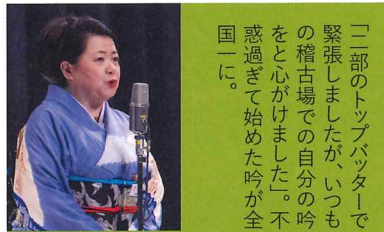 「二部のトップバッターで
緊張しましたが、いつも
の稽古場での自分の吟
をと心がけました」。不
惑過ぎて始めた吟が全
国一に。